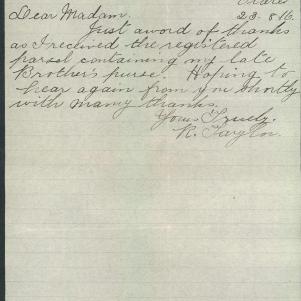 23.8.16.
Dear Madam.
Just a word of thanks
as I recieved the registered
parsel containing my late
Brother's purse. Hoping to
hear again from you shortly
with many thanks.
Yours Truly.
R. Taylor.